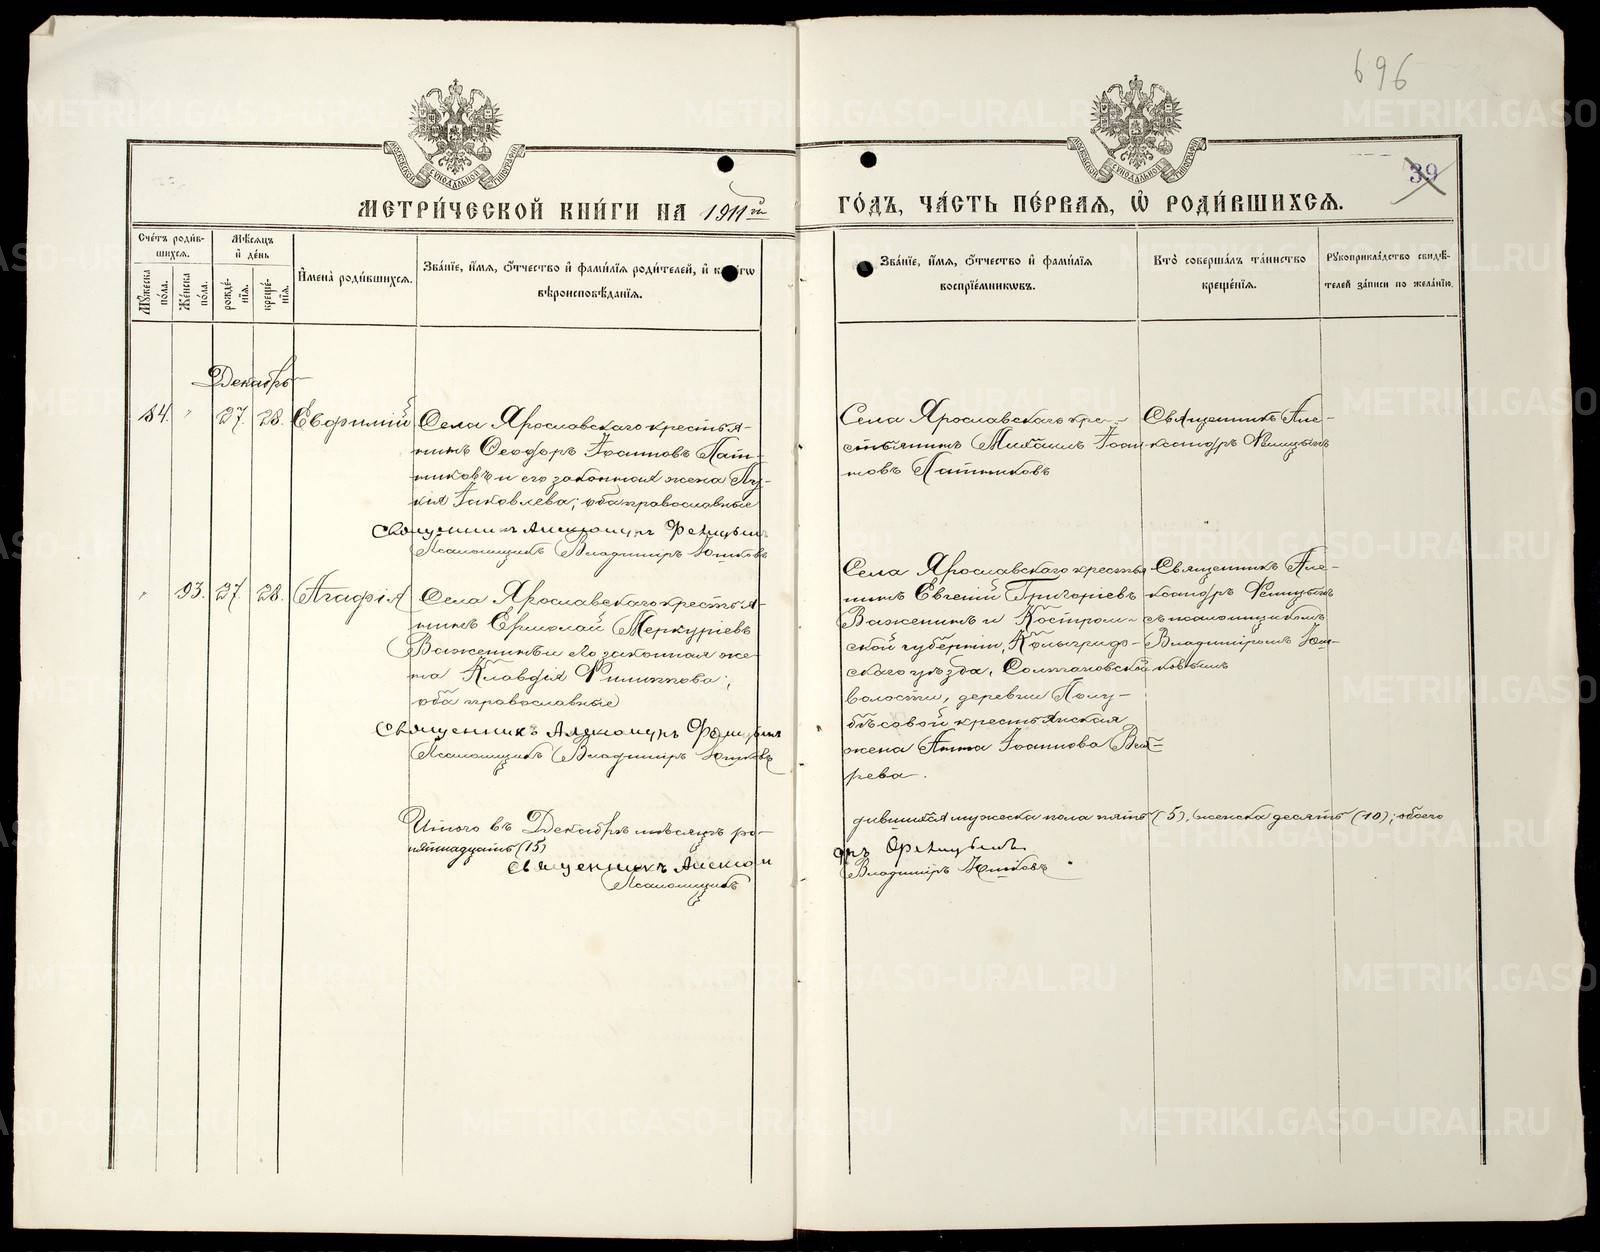 696
39
МЕТРИ́ЧЕСКОЙ КНИ́ГИ НА 1911й
ГО́ДЪ, ЧА́СТЬ ПЕ́РВАЯ, Ѡ҆ РОДИ́ВШИХСЯ.
Сче́тъ роди́в-
шихся.
Мѣ́сяцъ
и҆ де́нь
Мꙋ́жеска
по́ла.
Же́нска
по́ла.
рожде́-
нїя.
креще́-
нїя.
И҆мена̀ роди́вшихся.
Зва́нїе, и҆́мя, ѻ҆́тчество и҆ фами́лїя роди́телей, и҆
вѣроисповѣ́данїя.
Зва́нїе, и҆́мя, ѻ҆́тчество и҆ фами́лїя
воспрїе́мниковъ.
Кто̀ соверша́лъ та́инство
креще́нїя.
Рꙋкоприкла́дство свидѣ́-
телей за́писи по жела́нїю.
Декабрь
54. " 27. 28. Евфимий
Села Ярославскаго кресть я-
нинъ Ѳеодоръ Іоанновъ Пат-
никовъ и его законная жена Лу-
кія Іаковлева; оба православные
Священникъ Александръ Фелицынъ
Псаломщикъ Владимиръ Юшковъ
Села Ярославскаго кре-
стьянинъ Михаилъ Іоан
новъ Патниковъ
Священникъ Але-
ксандръ Фелицынъ
" 93. 27. 28. Агафія
Села Ярославскаго кресть я-
нинъ Ермолай Меркуріевъ
Важенинъ и его законная же-
на Клавдія Филиппова;
оба православные
Священникъ Александръ Фелицынъ
Псаломщикъ Владимиръ Юшковъ
Села Ярославскаго крестья
нинъ Евгеній Григоріевъ
Важенинъ и Костром-
ской губерніи,
скаго уѣзда, Солтановской
волости, деревни Полу-
бѣсовой крестьянская
жена Анна Іоаннова
рева.
Священникъ Але-
ксандръ Фелицынъ
съ псаломщикомъ
Владимиромъ Юш-
ковымъ
Итого въ Декабрѣ мѣсяцѣ ро-
дившихся мужеска пола пять (5), женска десять (10); обоего
пятнадцать (15)
Священникъ Алексан
дръ Фелицынъ
Псаломщикъ
Владимиръ Юшковъ
METRIKI.GASO-URAL.RU